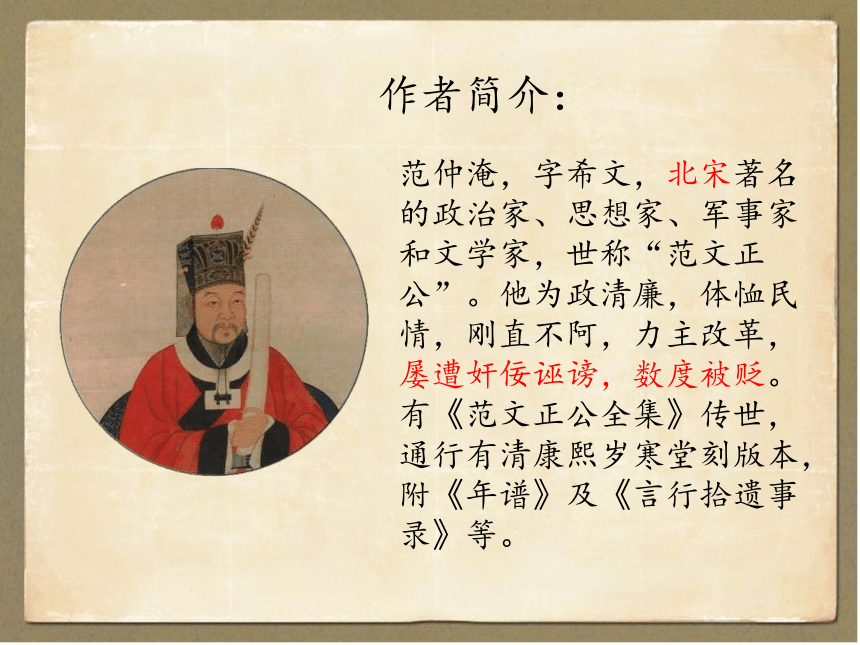 作者简介：
范仲淹，字希文，北宋著名
的政治家、思想家、军事家
和文学家，世称“范文正
公”。他为政清廉，体恤民
情，刚直不阿，力主改革，
屡遭奸佞诬谤，数度被贬。
有《范文正公全集》传世，
通行有清康熙岁寒堂刻版本，
附《年谱》及《言行拾遗事
录》等。